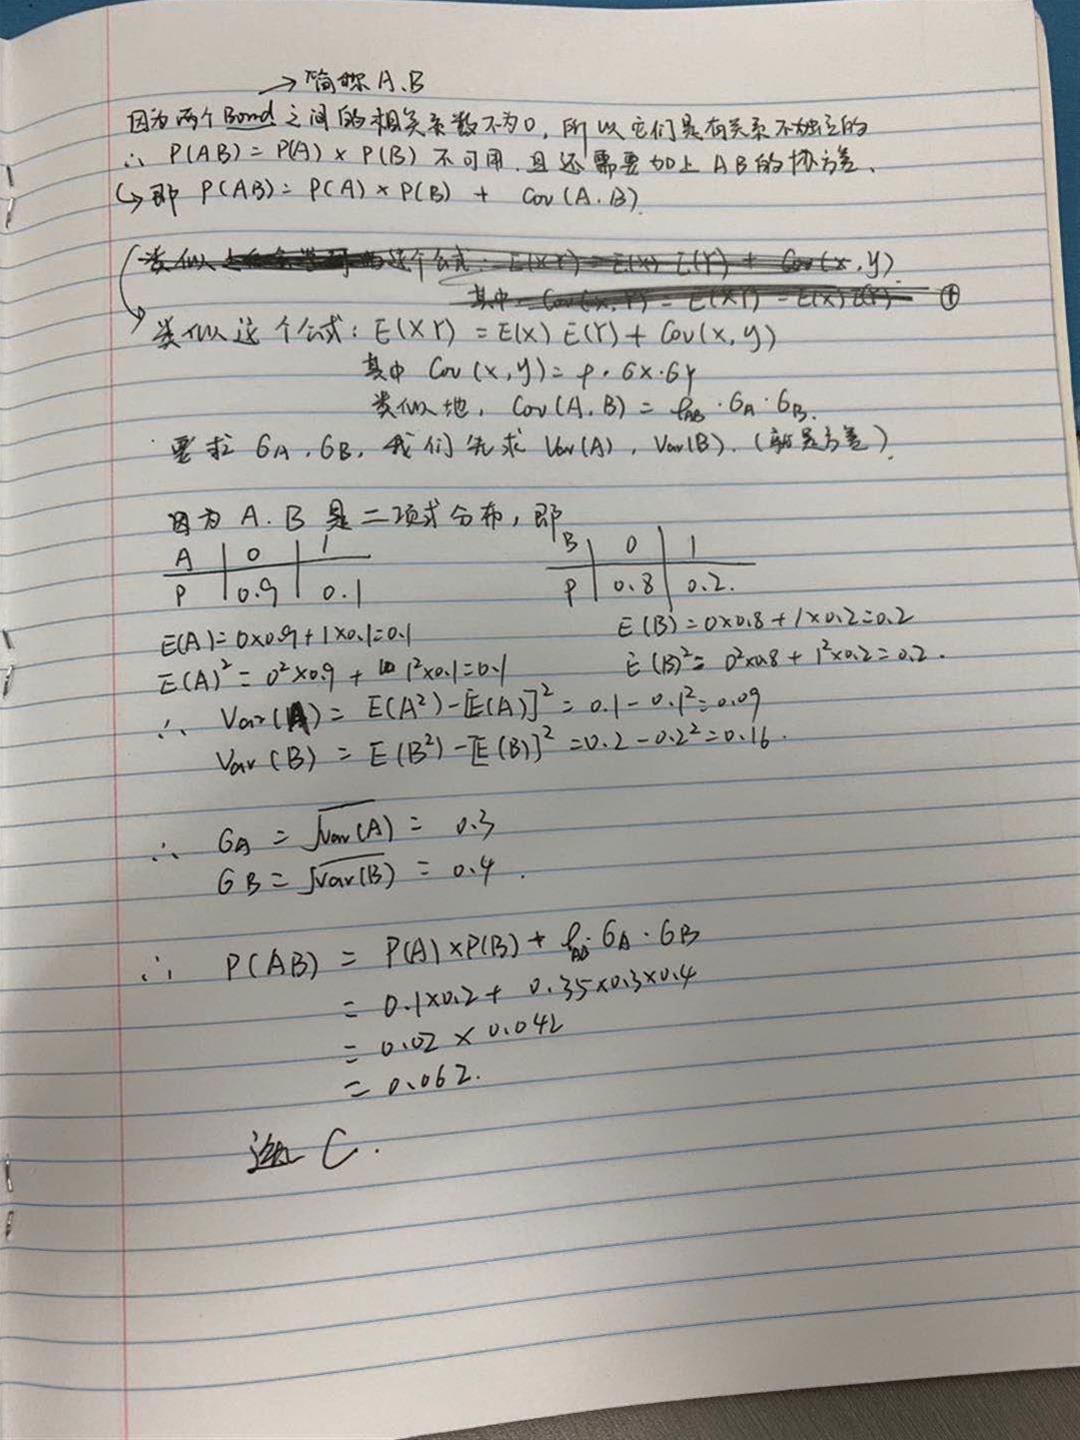 →简称A.B
因为两个Bond之间的相关系数不为0,所以它们是有关系不独立的
∴ P(AB)=P(A)×P(B) 不可用.且还需要加上AB的协方差.
↳即 P(AB)=P(A)×P(B) + Cov(A.B)
类似 这个公式: E(XY)=E(X) E(Y) + Cov(x,y)
其中 Cov(x,Y) = E(XY) - E(x)E(Y) ①
类似这个公式: E(XY) = E(X) E(Y) + Cov(x,y)
其中 Cov(x,y)=ρ·σx·σy
类似地, Cov(A.B) = ρAB·σA·σB.
要求σA,σB,我们先求 Var(A), Var(B).(就是方差)
因为A.B是二项式分布,即
A 0 1 B 0 1
P 0.9 0.1 P 0.8 0.2.
E(A)=0×0.9+1×0.1=0.1 E(B)=0×0.8+1×0.2=0.2
E(A)²= 0²×0.9 + 1²×0.1=0.1 E(B)²= 0²×0.8 + 1²×0.2=0.2.
∴ Var(A)= E(A²)-[E(A)]²= 0.1-0.1²=0.09
Var(B) = E(B²)-[E(B)]²=0.2-0.2²=0.16.
∴ σA = √Var(A) = 0.3
σB = √Var(B) = 0.4.
∴ P(AB) = P(A)×P(B)+ ρAB·σA·σB
= 0.1×0.2+ 0.35×0.3×0.4
= 0.02 × 0.042
= 0.062.
选C.